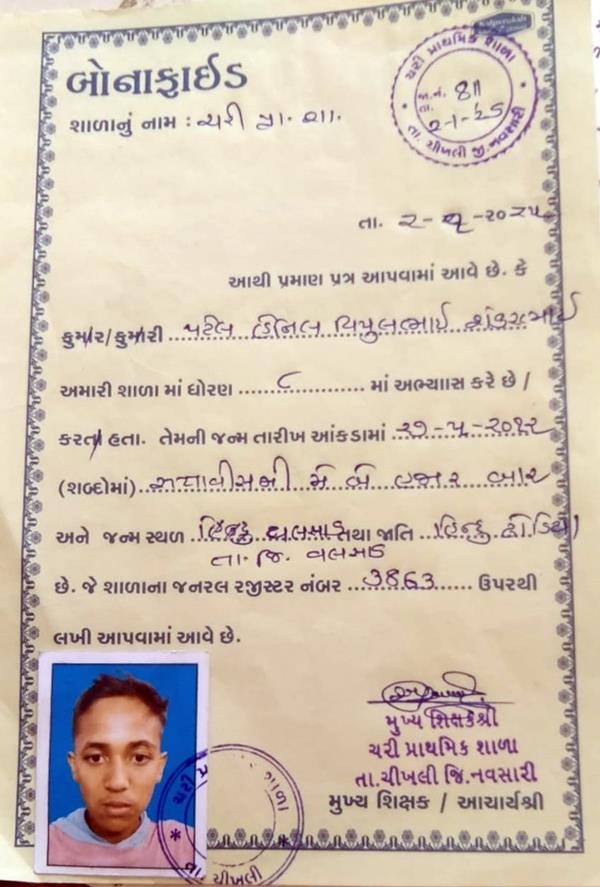 Kalpvruksh
બોનાફાઈડ
ચરી પ્રાથમિક શાળા
જા.નં. 811
તા. 2-1-25
તા. ચીખલી જી.નવસારી
શાળાનું નામ : ચરી પ્રા. શા.
તા. ૨-૧-૨૦૨૫
આથી પ્રમાણ પત્ર આપવામાં આવે છે. કે
કુમાર/કુમારી પટેલ વિપુલભાઈ
અમારી શાળા માં ધોરણ ૮ માં અભ્યાસ કરે છે /
કરતા હતા. તેમની જન્મ તારીખ આંકડામાં ૨૭-૫-૨૦૧૨
(શબ્દોમાં) સત્તાવીસમી મે બે હજાર બાર
અને જન્મ સ્થળ વલસાડ તથા જાતિ હિન્દુ ધોડિયા
તા.જિ. વલસાડ
છે. જે શાળાના જનરલ રજીસ્ટર નંબર 3863 ઉપરથી
લખી આપવામાં આવે છે.
મુખ્ય શિક્ષકશ્રી
ચરી પ્રાથમિક શાળા
તા.ચીખલી જિ.નવસારી
મુખ્ય શિક્ષક / આચાર્યશ્રી
ચરી શાળા
તા ચીખલી